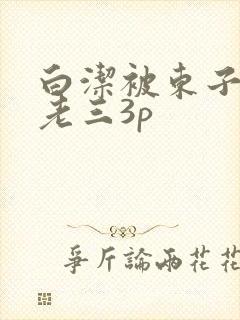 白潔被東子
老三3p
爭斤論兩花花